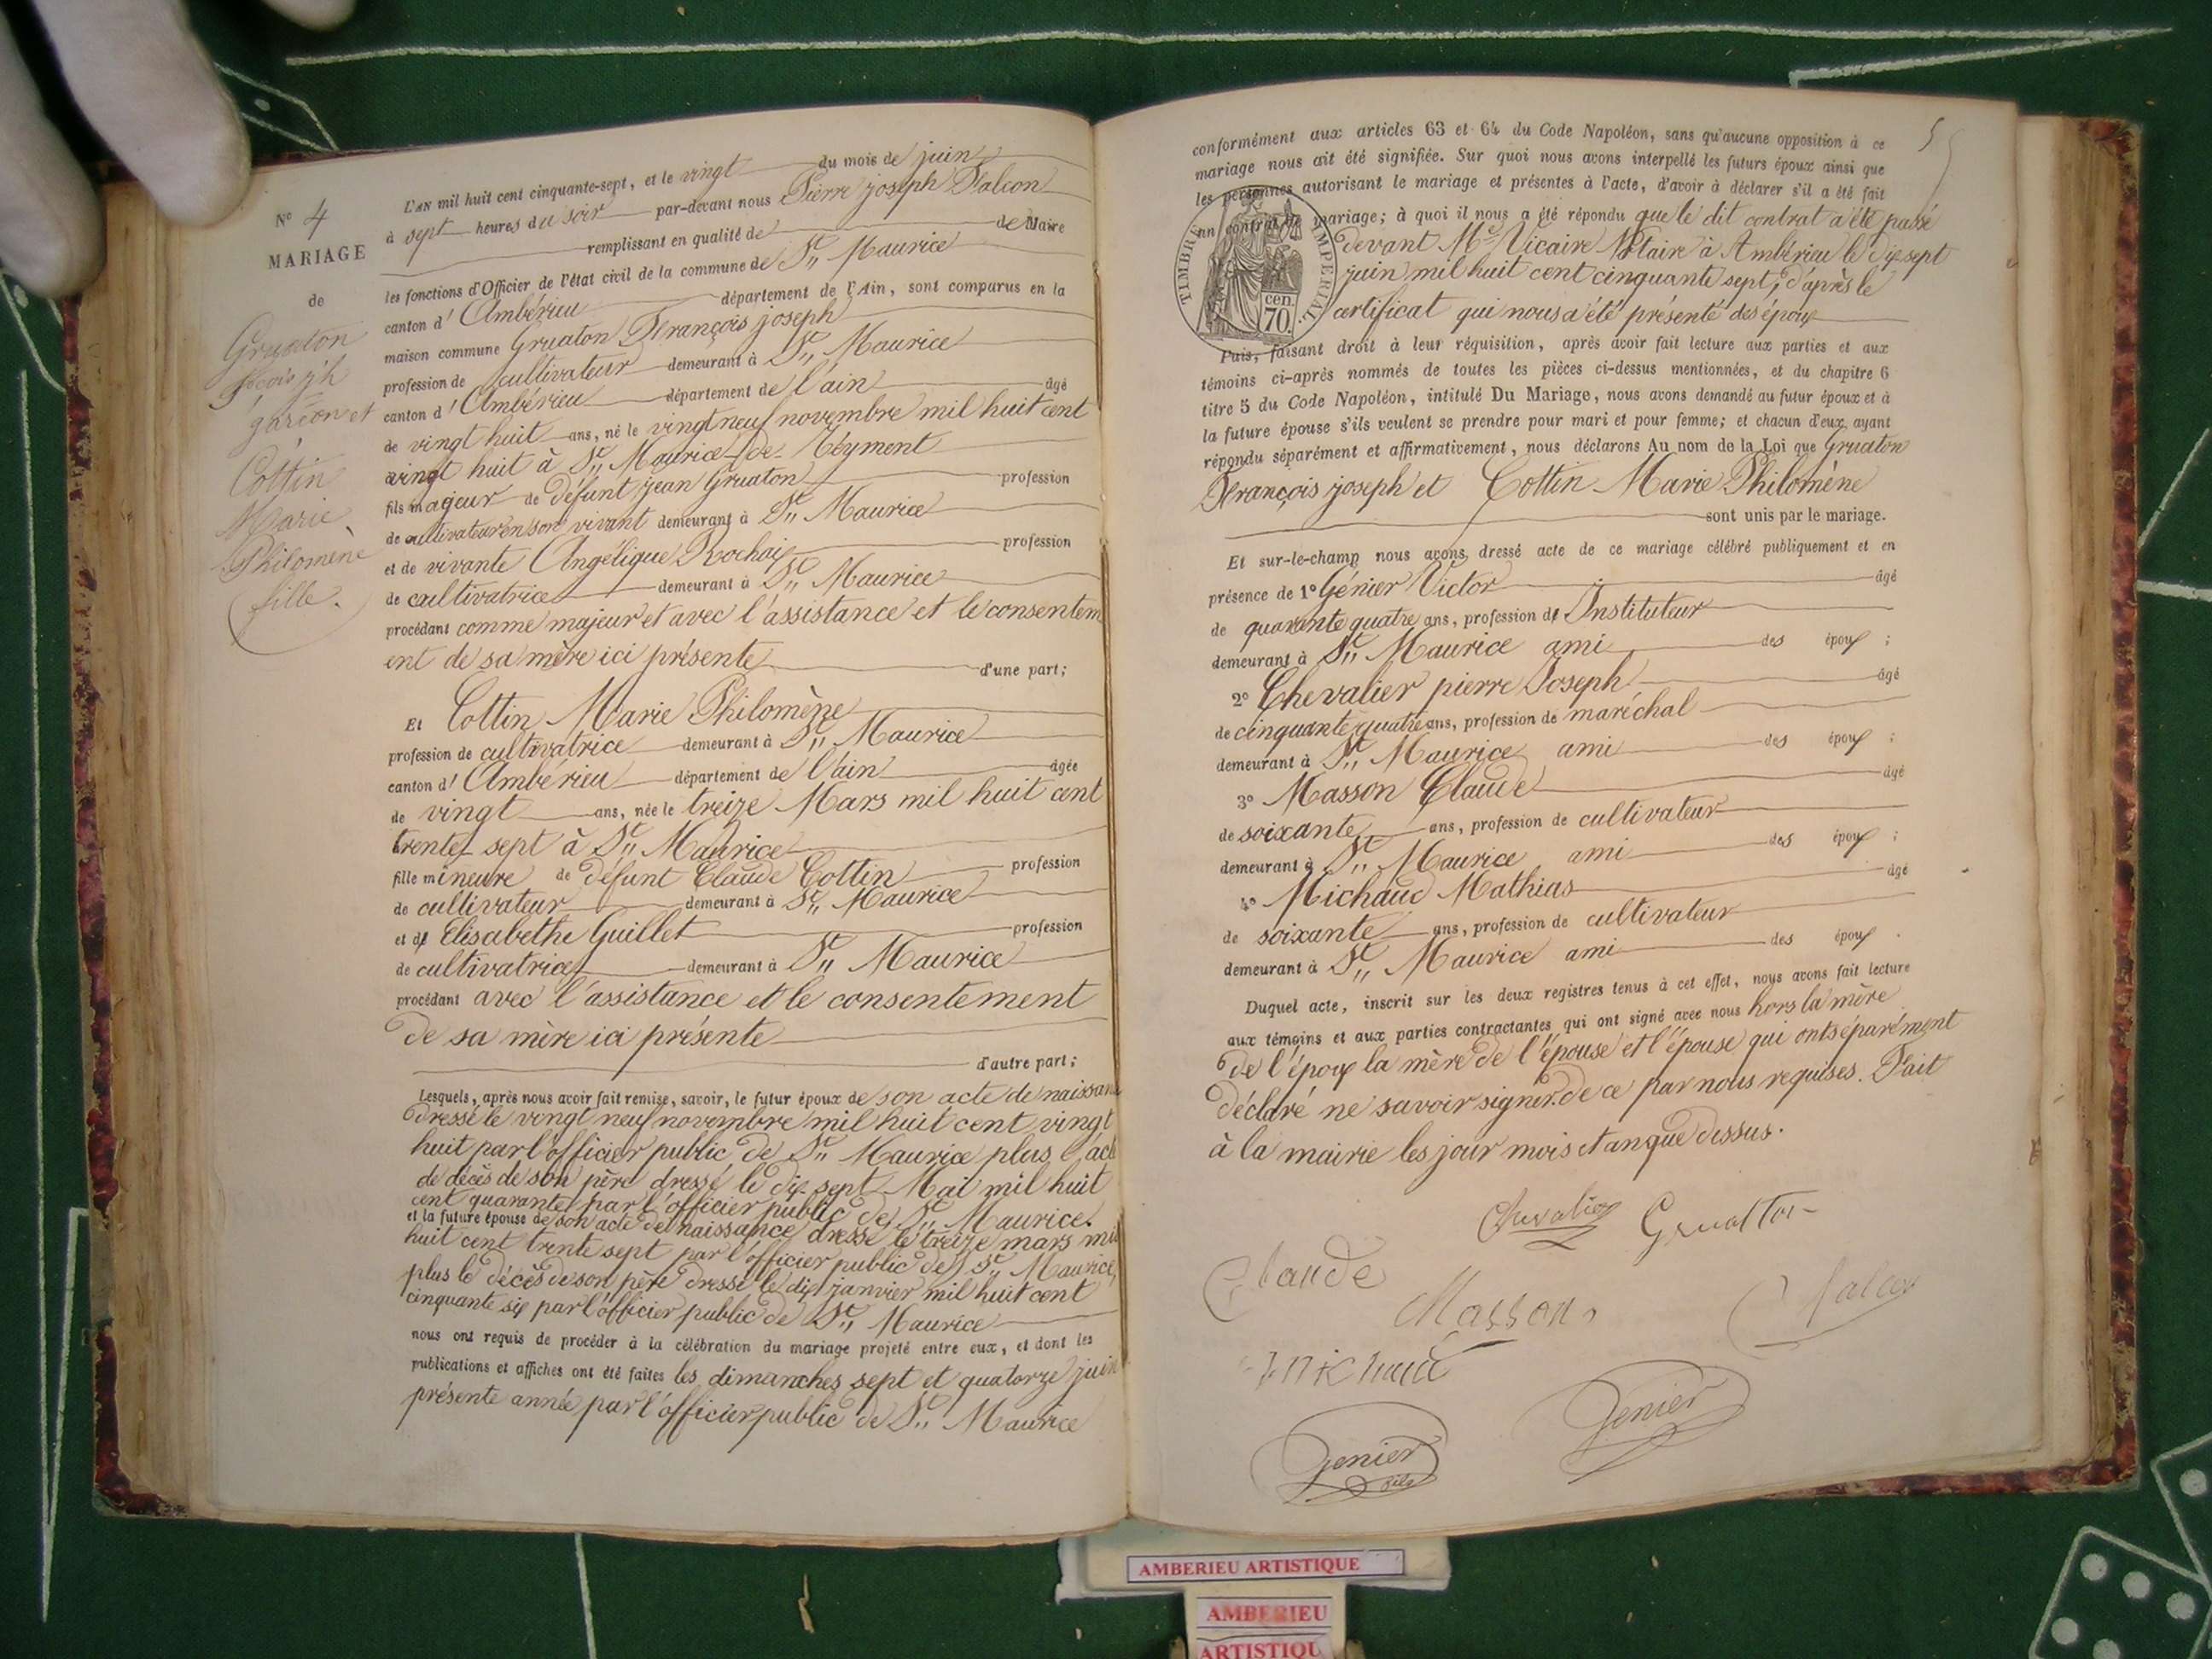 N° 4
MARIAGE
de
Gruaton
fçois jh
garçon et
Cottin
Marie
Philomène
fille.
L'AN mil huit cent cinquante-sept, et le vingt du mois de juin
à sept heures du soir par-devant nous Pierre joseph Falcon
remplissant en qualité de de Maire
les fonctions d'Officier de l'état civil de la commune de St Maurice
canton d'Ambérieu département de l'Ain, sont comparus en la
maison commune Gruaton François joseph
profession de cultivateur demeurant à St Maurice
canton d'Ambérieu département de l'ain âgé
de vingt huit ans, né le vingt neuf novembre mil huit cent
vingt huit à St Maurice-de-Réyment
fils majeur de défunt jean Gruaton profession
de cultivateur en son vivant demeurant à St Maurice
et de vivante Angélique Rochaix profession
de cultivatrice demeurant à St Maurice
procédant comme majeur et avec l'assistance et le consentem
ent de sa mère ici présente d'une part;
Et Cottin Marie Philomène
profession de cultivatrice demeurant à St Maurice
canton d'Ambérieu département de l'ain âgée
de vingt ans, née le treize Mars mil huit cent
trente sept à St Maurice
fille mineure de défunt Claude Cottin profession
de cultivateur demeurant à St Maurice
et de Elisabethe Guillet profession
de cultivatrice demeurant à St Maurice
procédant avec l'assistance et le consentement
de sa mère ici présente
d'autre part;
Lesquels, après nous avoir fait remise, savoir, le futur époux de son acte de naissan
dressé le vingt neuf novembre mil huit cent vingt
huit par l'officier public de St Maurice plus l'act
de décès de son père dressé le dix sept Mai mil huit
cent quarante par l'officier public de St Maurice.
et la future épouse de son acte de naissance dressé le treize mars mil
huit cent trente sept par l'officier public de St Maurice,
plus le décès de son père dressé le dix janvier mil huit cent
cinquante six par l'officier public de St Maurice
nous ont requis de procéder à la célébration du mariage projeté entre eux, et dont les
publications et affiches ont été faites les dimanches sept et quatorze juin
présente année par l'officier public de St Maurice
5
conformément aux articles 63 et 64 du Code Napoléon, sans qu'aucune opposition à ce
mariage nous ait été signifiée. Sur quoi nous avons interpellé les futurs époux ainsi que
les personnes autorisant le mariage et présentes à l'acte, d'avoir à déclarer s'il a été fait
un contrat de mariage; à quoi il nous a été répondu que le dit contrat a été passé
devant Me Vicaire Notaire à Ambérieu le dix sept
juin mil huit cent cinquante sept, d'après le
certificat qui nous a été présenté des époux
TIMBRE IMPERIAL
cen.
70.
Puis, faisant droit à leur réquisition, après avoir fait lecture aux parties et aux
témoins ci-après nommés de toutes les pièces ci-dessus mentionnées, et du chapitre 6
titre 5 du Code Napoléon, intitulé Du Mariage, nous avons demandé au futur époux et à
la future épouse s'ils veulent se prendre pour mari et pour femme; et chacun d'eux ayant
répondu séparément et affirmativement, nous déclarons Au nom de la Loi que Gruaton
François joseph et Cottin Marie Philomène
sont unis par le mariage.
Et sur-le-champ nous avons dressé acte de ce mariage célébré publiquement et en
présence de 1° Génier Victor âgé
de quarante quatre ans, profession d' Instituteur
demeurant à St Maurice ami des époux ;
2° Chevalier pierre Joseph âgé
de cinquante quatre ans, profession de maréchal
demeurant à St Maurice ami des époux ;
3° Masson Claude âgé
de soixante ans, profession de cultivateur
demeurant à St Maurice ami des époux ;
4° Michaud Mathias âgé
de soixante ans, profession de cultivateur
demeurant à St Maurice ami des époux .
Duquel acte, inscrit sur les deux registres tenus à cet effet, nous avons fait lecture
aux témoins et aux parties contractantes qui ont signé avec nous hors la mère
de l'époux la mère de l'épouse et l'épouse qui ont séparément
déclaré ne savoir signer. de ce par nous requises. Fait
à la mairie les jour mois et an que dessus.
Chevalier Gruatton
Claude
Masson Falcon
michaud
Genier
Genier
fils
AMBERIEU ARTISTIQUE
AMBERIEU
ARTISTIQU